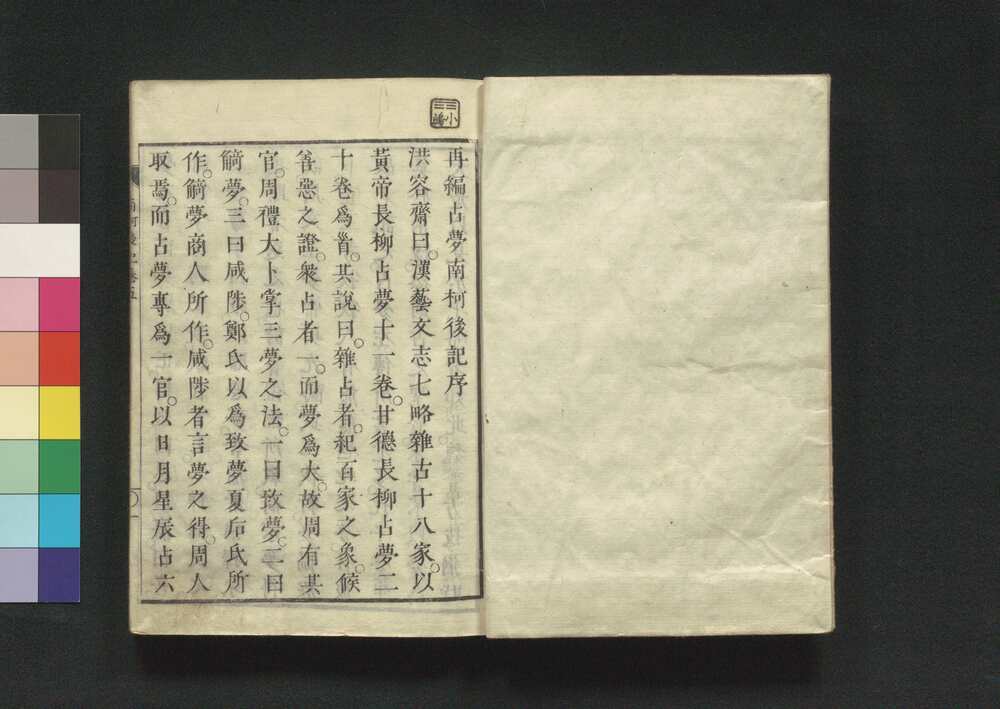 再編占夢南柯後記序
洪容齋曰。漢藝文志七略雜占十八家。以
黃帝長柳占夢十一卷。甘德長柳占夢二
十卷爲首。其說曰。雜占者。紀百家之象。候
善惡之證。衆占者一。而夢爲大。故周有其
官。周禮大卜掌三夢之法。一曰致夢。二曰
觭夢。三曰咸陟。鄭氏以爲致夢夏后氏所
作。觭夢商人所作。咸陟者言夢之得。周人
取焉。而占夢專爲一官。以日月星辰占六